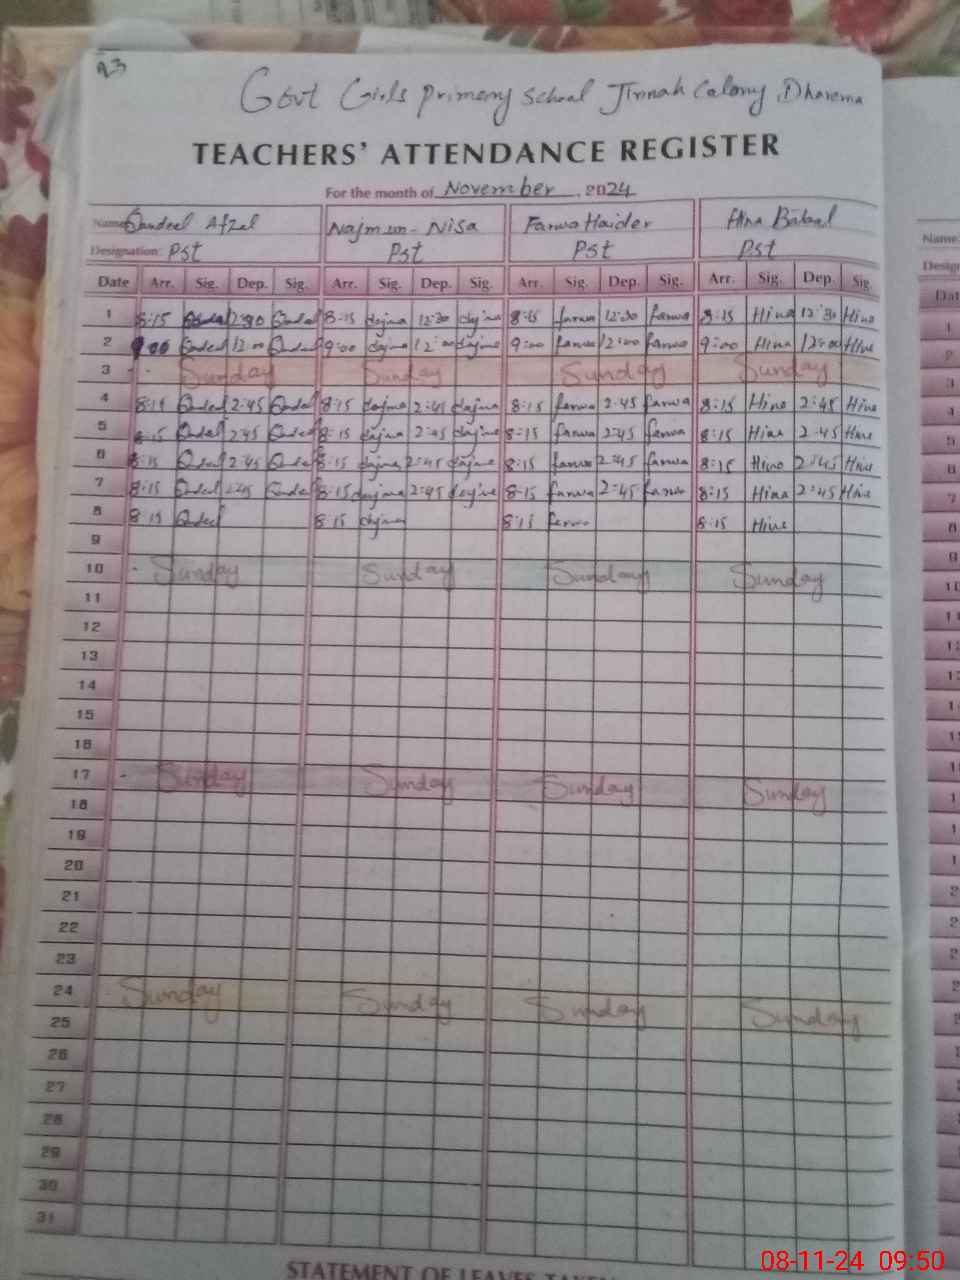 93
Govt Girls Primery School Jinnah Calony Dharema
TEACHERS' ATTENDANCE REGISTER
For the month of November, 2024
Name: Afzal Najm un - Nisa Farwa Haider Hina
Designation: Pst Pst Pst Pst Name:
Date Arr. Sig. Dep. Sig. Arr. Sig. Dep. Sig. Arr. Sig. Dep. Sig. Arr. Sig. Dep. Sig.
1 8:15 8:15 12:30 8:15 farwa 12:30 farwa 8:15 Hina 12:30 Hina
2 9:00 12:00 9:00 12:00 9:00 farwa 12:00 farwa 9:00 Hina 12:00 Hina
3 Sunday Sunday Sunday Sunday
4 8:15 2:45 8:15 2:45 8:15 farwa 2:45 farwa 8:15 Hina 2:45 Hina
5 8:15 2:45 8:15 2:45 8:15 farwa 2:45 farwa 8:15 Hina 2:45 Hina
6 8:15 2:45 8:15 2:45 8:15 farwa 2:45 farwa 8:15 Hina 2:45 Hina
7 8:15 2:45 8:15 2:45 8:15 farwa 2:45 farwa 8:15 Hina 2:45 Hina
8 8:15 8:15 8:15 farwa 8:15 Hina
9
10 Sunday Sunday Sunday Sunday
11
12
13
14
15
16
17 Sunday Sunday Sunday Sunday
18
19
20
21
22
23
24 Sunday Sunday Sunday Sunday
25
26
27
28
29
30
31
STATEMENT OF LEAVES TAKEN
08-11-24 09:50